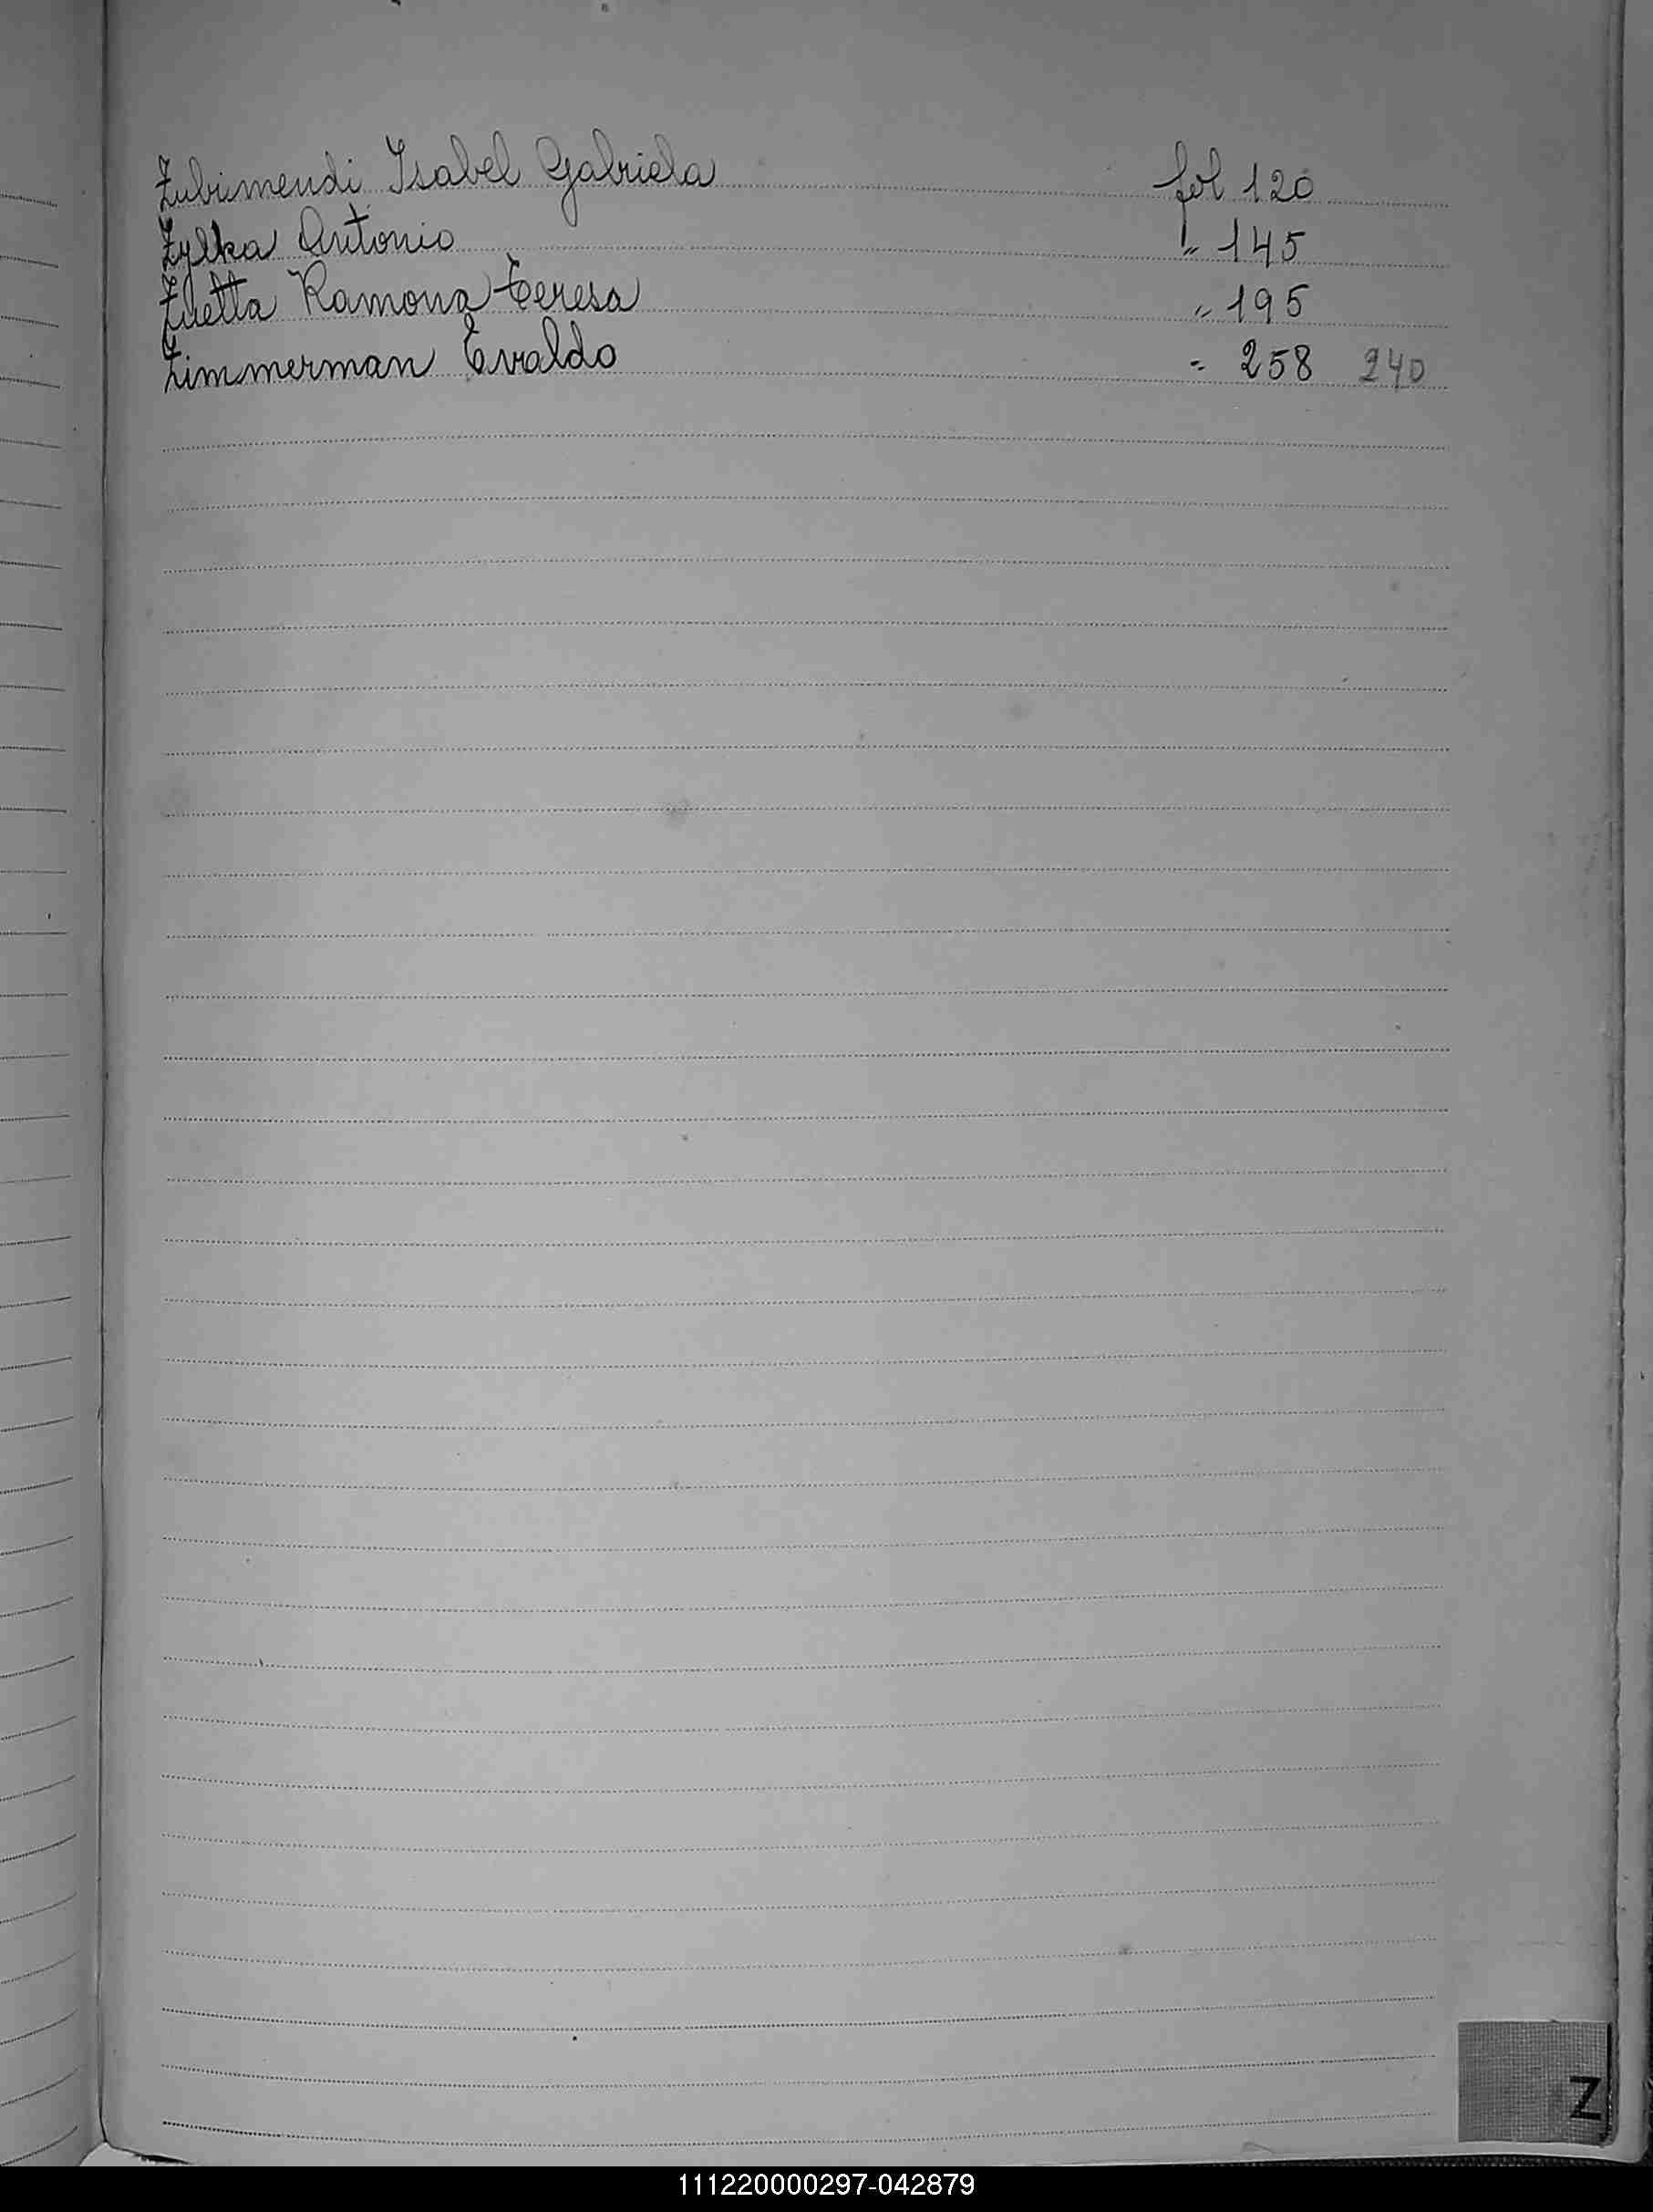 Zubimendi Isabel Gabriela fol 120
Zylka Antonio " 145
Zuetta Ramona Teresa " 195
Zimmerman Evaldo = 258 240
Z
111220000297-042879